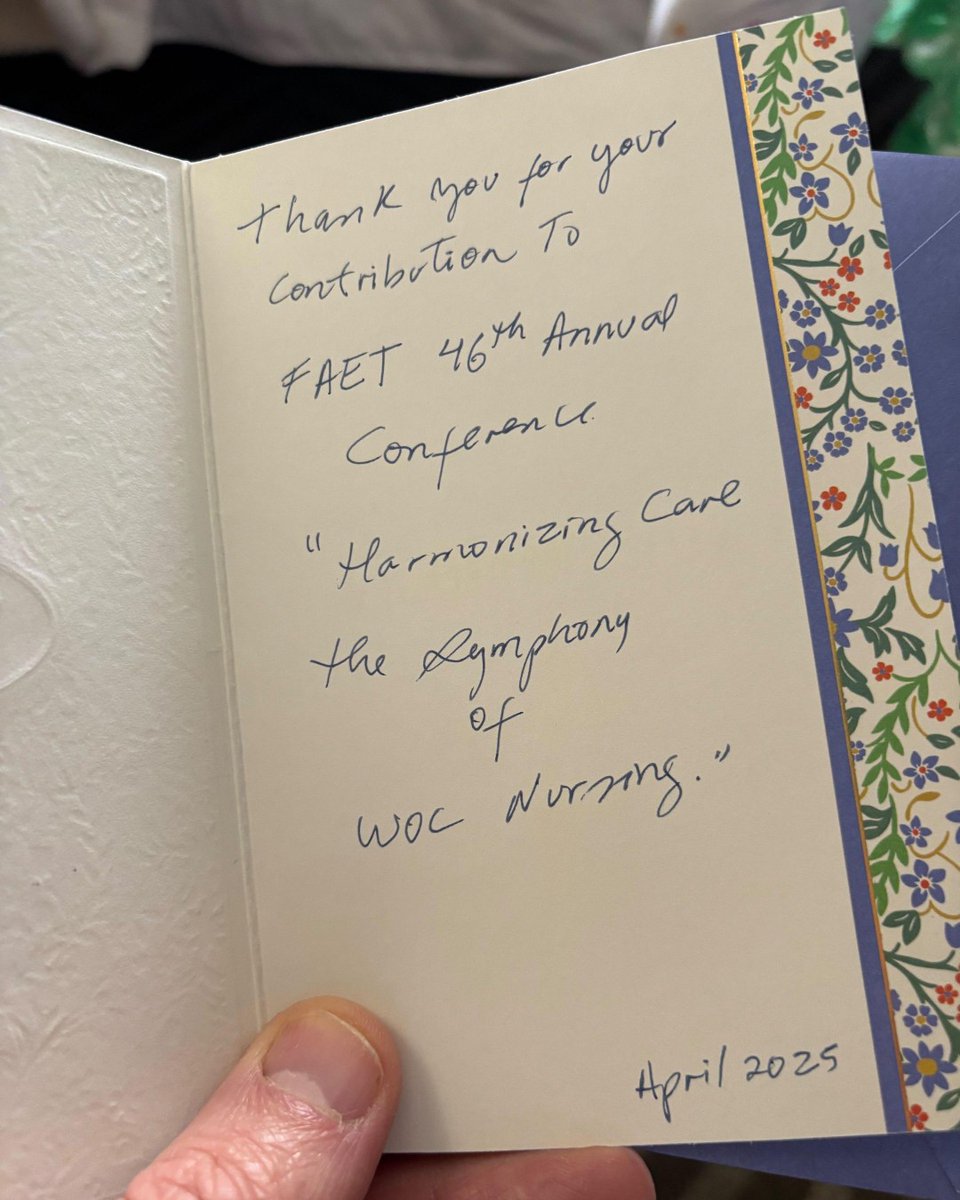 Thank you for your
Contribution To
FAET 46th Annual
Conference
"Harmonizing Care
the Symphony
of
WOC Nursing."
April 2025